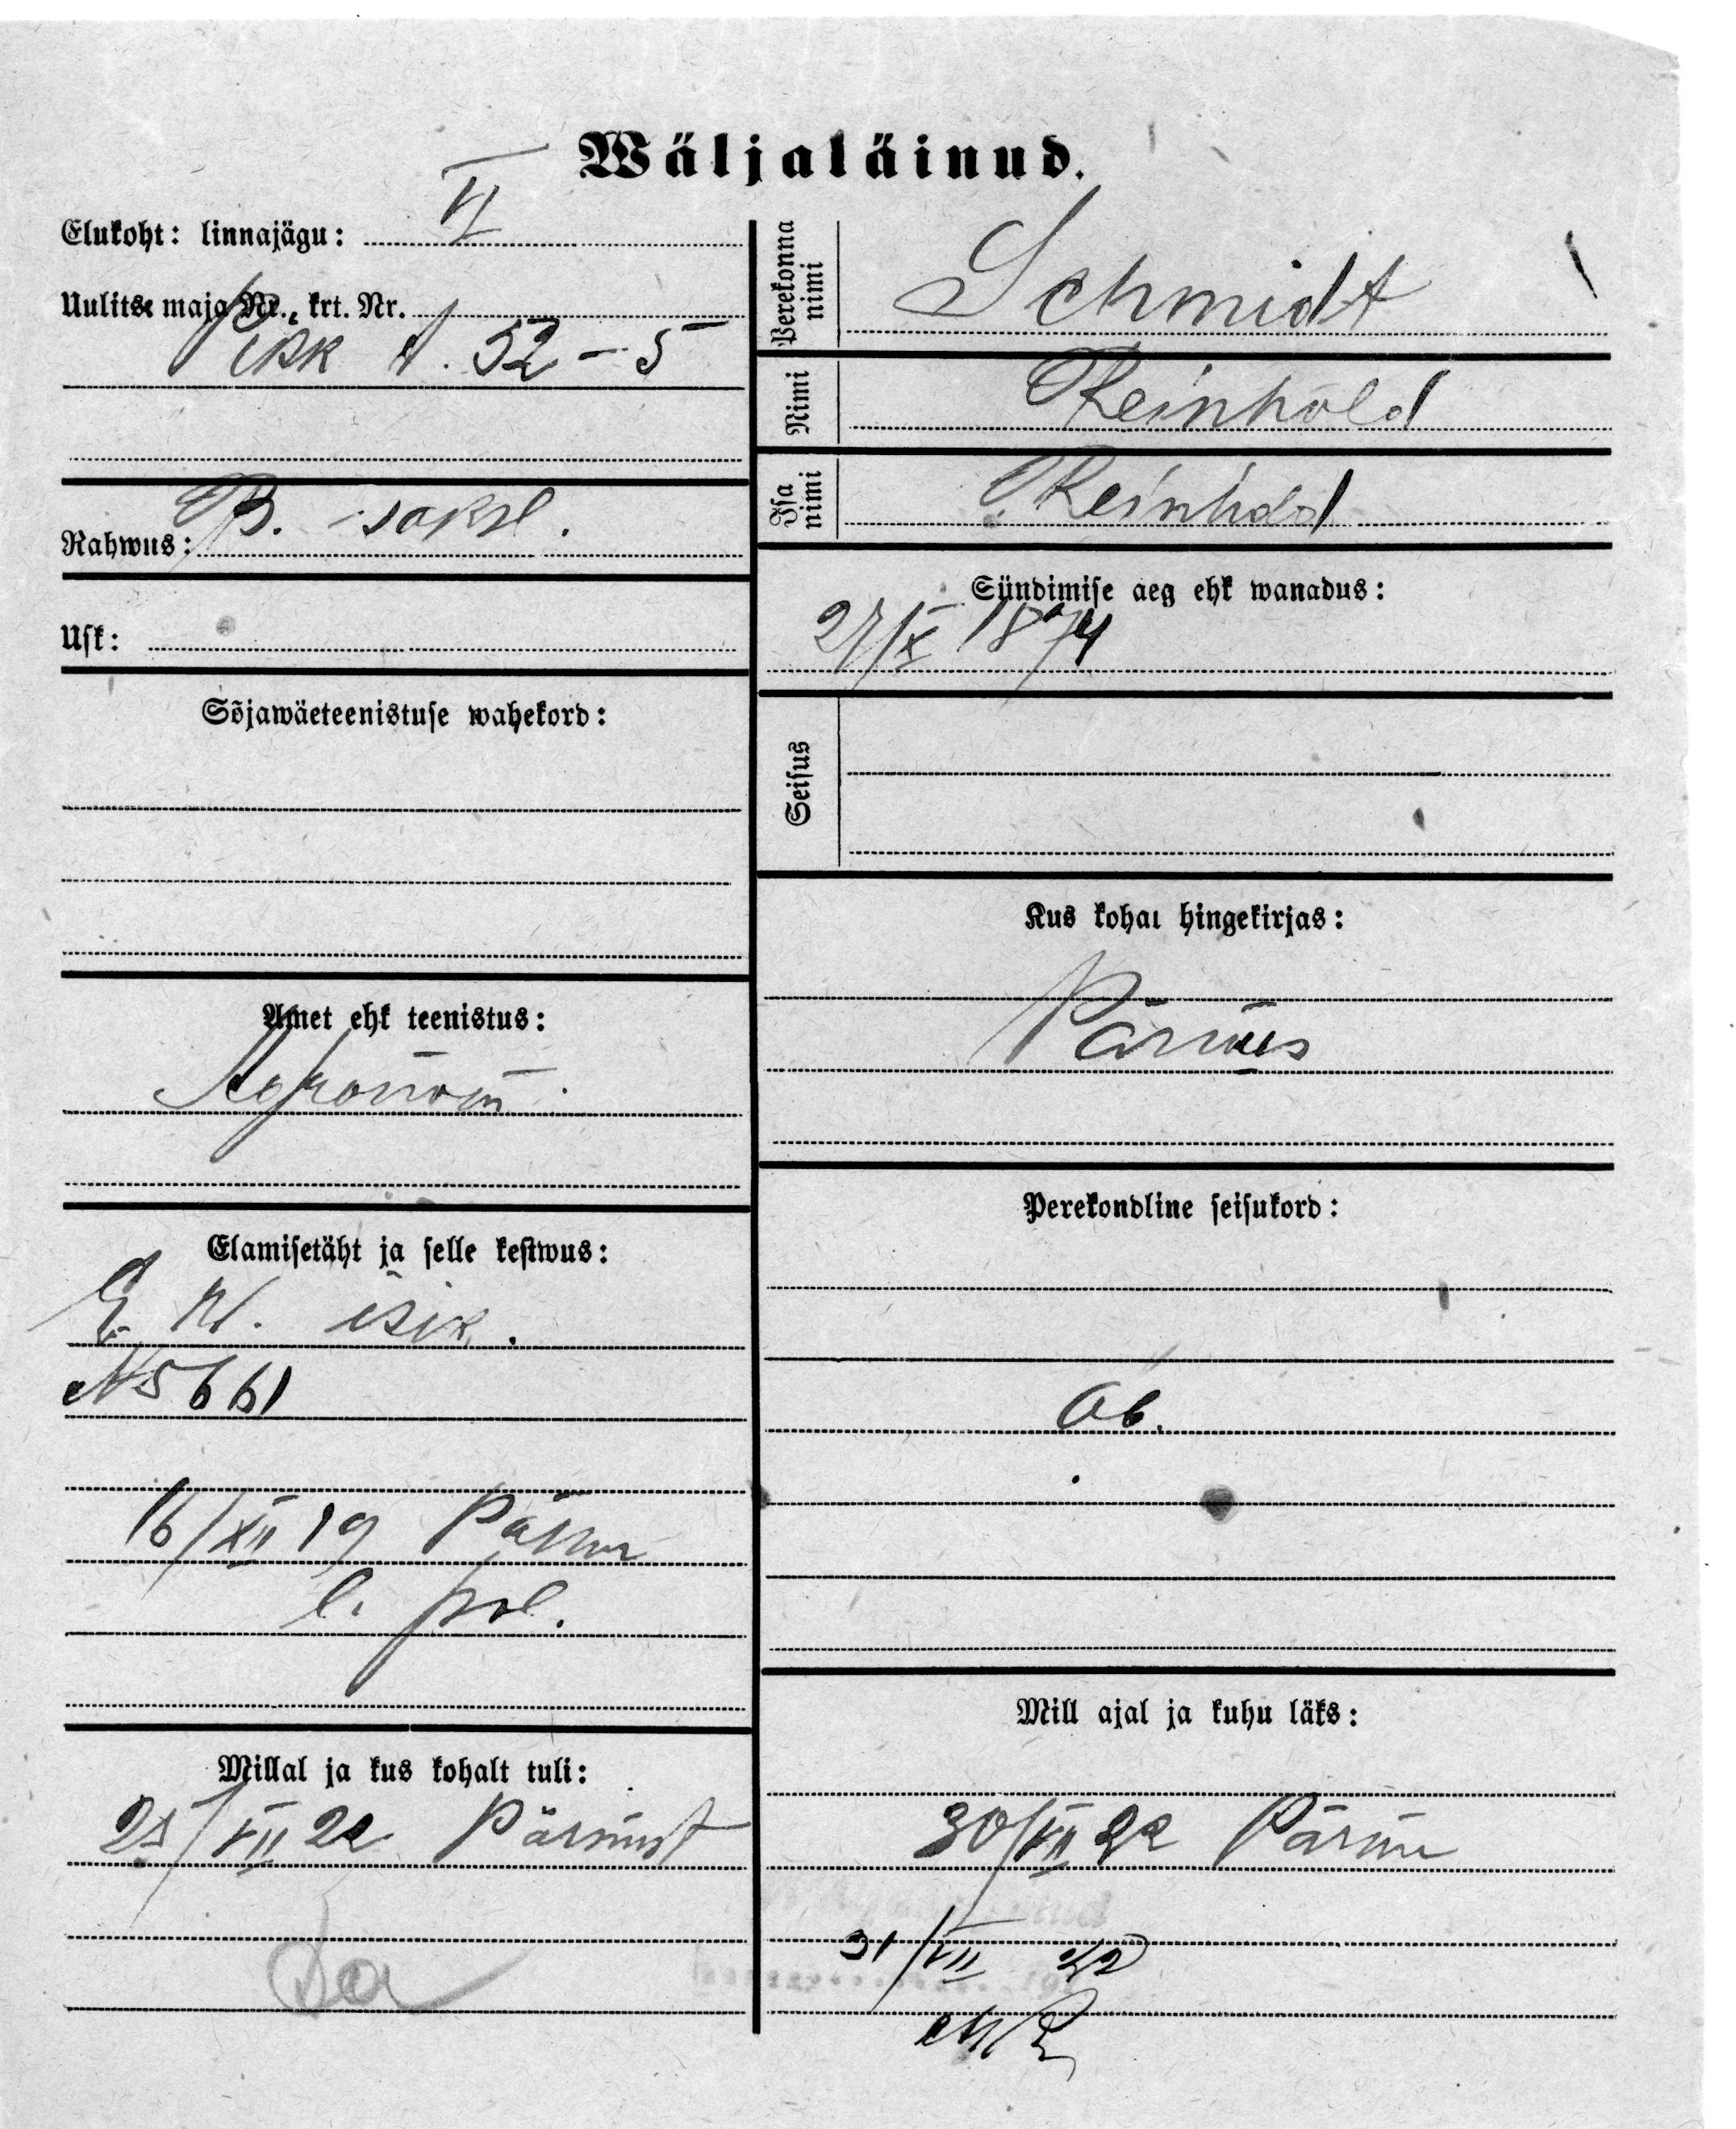 Wäljaläinud.
Elukoht: linnajägu: VI
Uulitse maja Nr., krt. Nr.
Pikk t. 52 – 5
Rahwus: B. saksl.
Usk:
Sõjawäeteenistuse wahekord:
Amet ehk teenistus:
Agronom
Elamisetäht ja selle kestwus:
E. kd. isik.
№ 5661
16/XII 19 Pärnu
l. pol.
Millal ja kus kohalt tuli:
25/VII 22 Pärnust
Perekonna nimi
Schmidt
Nimi
Reinhold
Isa nimi
Reinhold
Sündimise aeg ehk wanadus:
27/IX 1874
Seisus
Kus kohal hingekirjas:
Pärnus
Perekondline seisukord:
Ab.
Mill ajal ja kuhu läks:
30/VII 22 Pärnu
31/VII 22